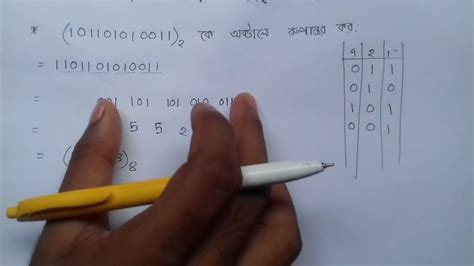 * (101101010011)₂ কে অক্টালে রূপান্তর কর:
= 1101101010011
= 001 101 101 010 011
= 5 5 2
= ( 3)₈
4 2 1
0 1 1
0 1 0
1 0 1
0 0 1